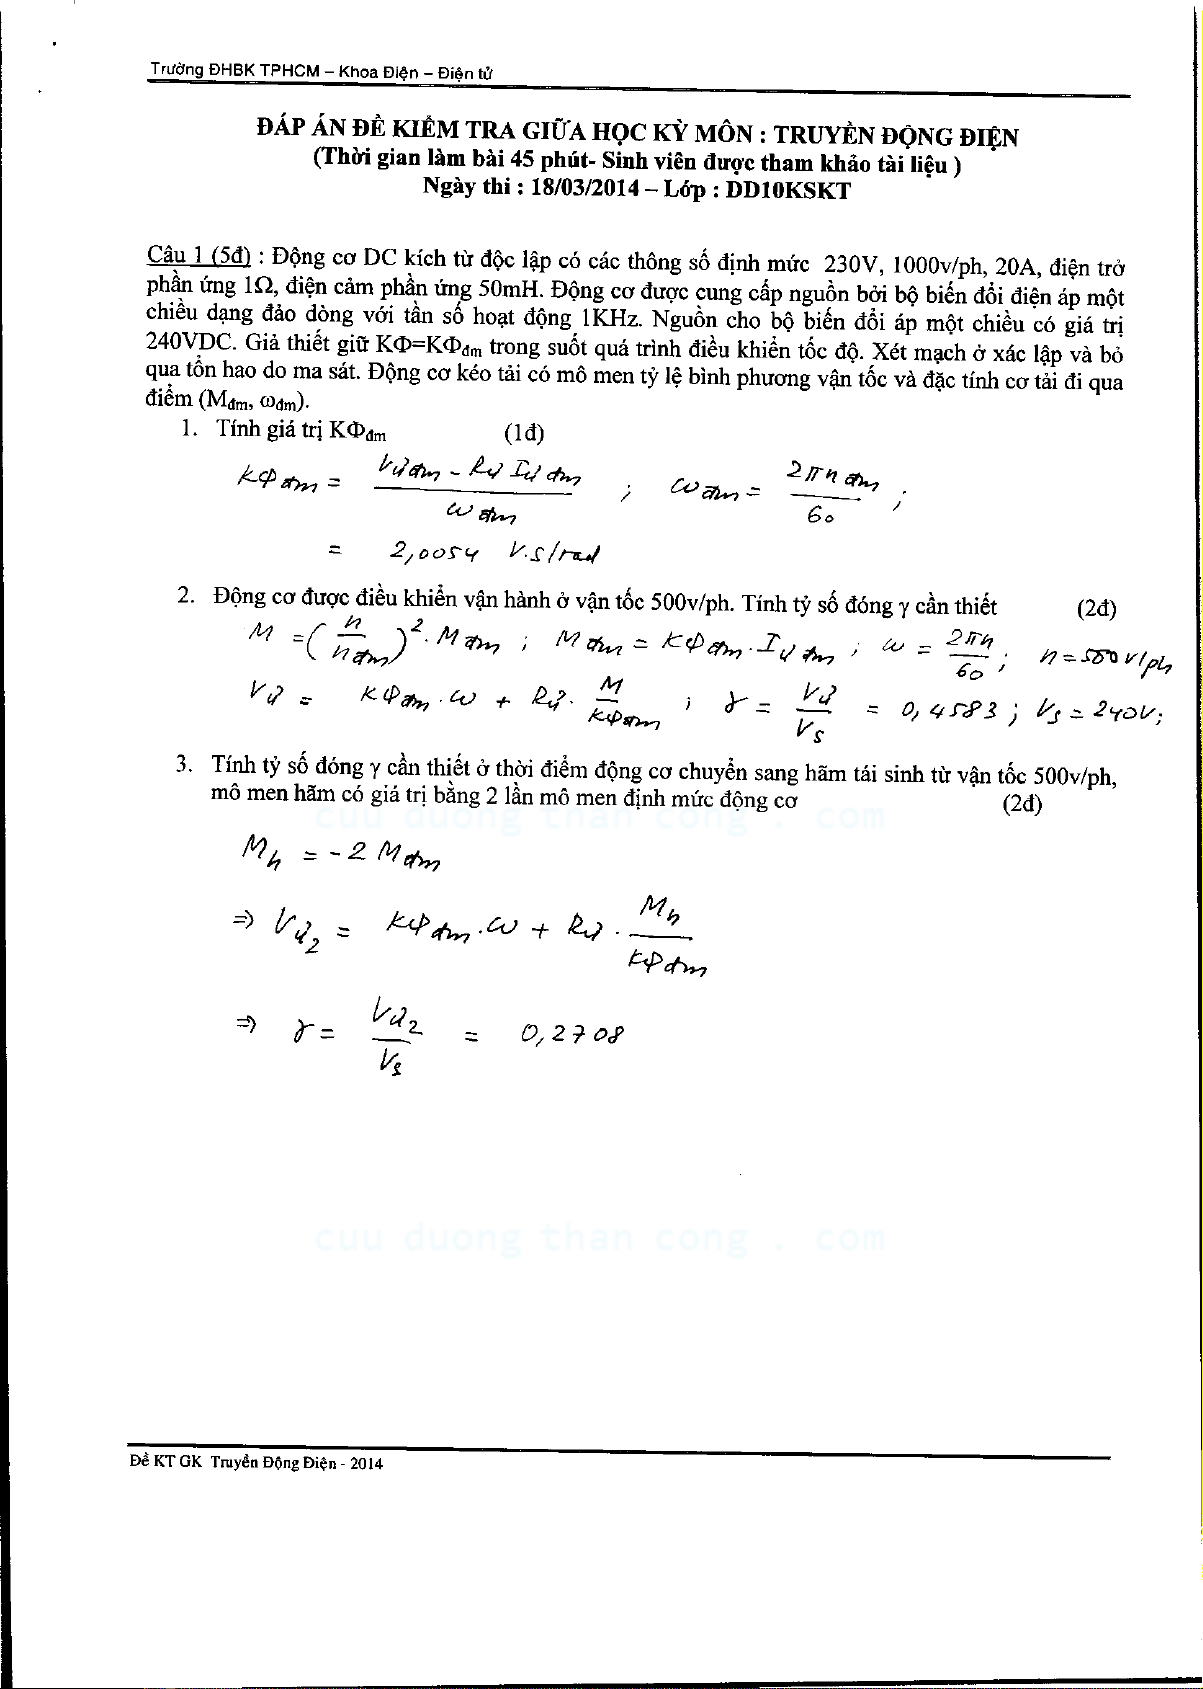 Trường ĐHBK TPHCM – Khoa Điện – Điện tử
ĐÁP ÁN ĐỀ KIỂM TRA GIỮA HỌC KỲ MÔN : TRUYỀN ĐỘNG ĐIỆN
(Thời gian làm bài 45 phút- Sinh viên được tham khảo tài liệu )
Ngày thi : 18/03/2014 – Lớp : DD10KSKT
Câu 1 (5đ) : Động cơ DC kích từ độc lập có các thông số định mức 230V, 1000v/ph, 20A, điện trở
phần ứng 1Ω, điện cảm phần ứng 50mH. Động cơ được cung cấp nguồn bởi bộ biến đổi điện áp một
chiều dạng đảo dòng với tần số hoạt động 1KHz. Nguồn cho bộ biến đổi áp một chiều có giá trị
240VDC. Giả thiết giữ KΦ=KΦđm trong suốt quá trình điều khiển tốc độ. Xét mạch ở xác lập và bỏ
qua tổn hao do ma sát. Động cơ kéo tải có mô men tỷ lệ bình phương vận tốc và đặc tính cơ tải đi qua
điểm (Mđm, ωđm).
1. Tính giá trị KΦđm (1đ)
KΦđm = (Vưđm - Rư Iưđm) / ωđm ; ωđm = 2πnđm / 60 ;
= 2,0054 V.s/rad
2. Động cơ được điều khiển vận hành ở vận tốc 500v/ph. Tính tỷ số đóng γ cần thiết (2đ)
M = (n / nđm)². Mđm ; Mđm = KΦđm . Iưđm ; ω = 2πn / 60 ; n = 500 v/ph
Vư = KΦđm . ω + Rư . M / KΦđm ; γ = Vư / Vs = 0,4583 ; Vs = 240V;
3. Tính tỷ số đóng γ cần thiết ở thời điểm động cơ chuyển sang hãm tái sinh từ vận tốc 500v/ph,
mô men hãm có giá trị bằng 2 lần mô men định mức động cơ (2đ)
cuu duong than cong . com
Mh = -2 Mđm
=> Vư2 = KΦđm . ω + Rư . Mh / KΦđm
=> γ = Vư2 / Vs = 0,2708
cuu duong than cong . com
Đề KT GK Truyền Động Điện - 2014